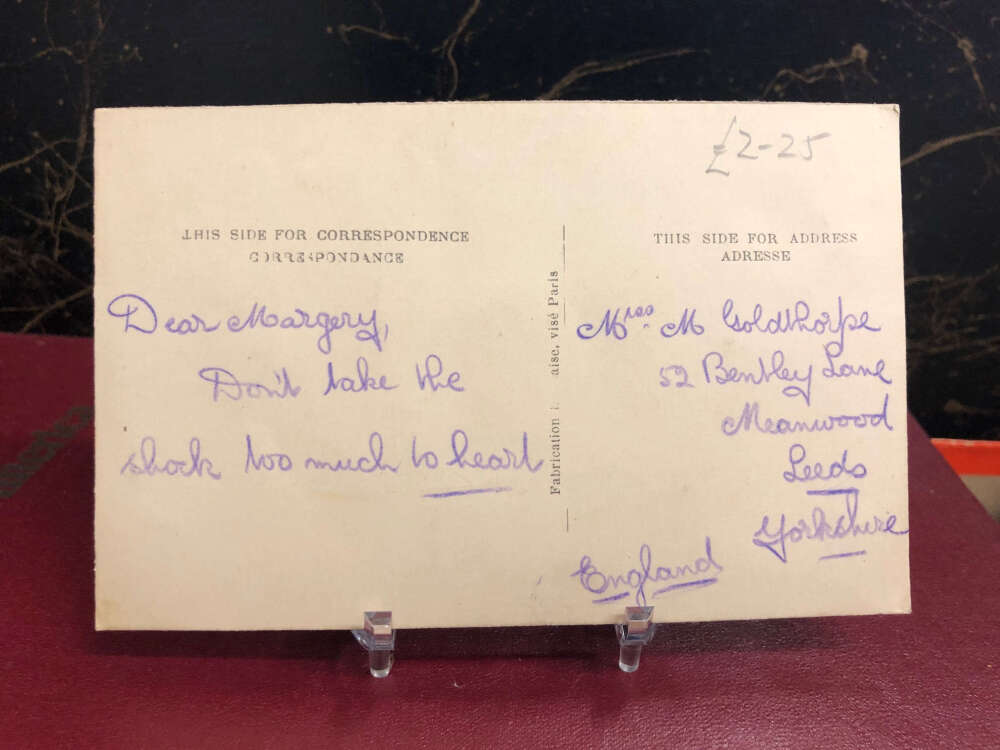 £2-25
THIS SIDE FOR CORRESPONDENCE
CORRESPONDANCE
Dear Margery,
Don't take the
shock too much to heart
Fabrication aise, visé Paris
THIS SIDE FOR ADDRESS
ADRESSE
Mrss. M Goldthorpe
52 Bentley Lane
Meanwood
Leeds
Yorkshire
England